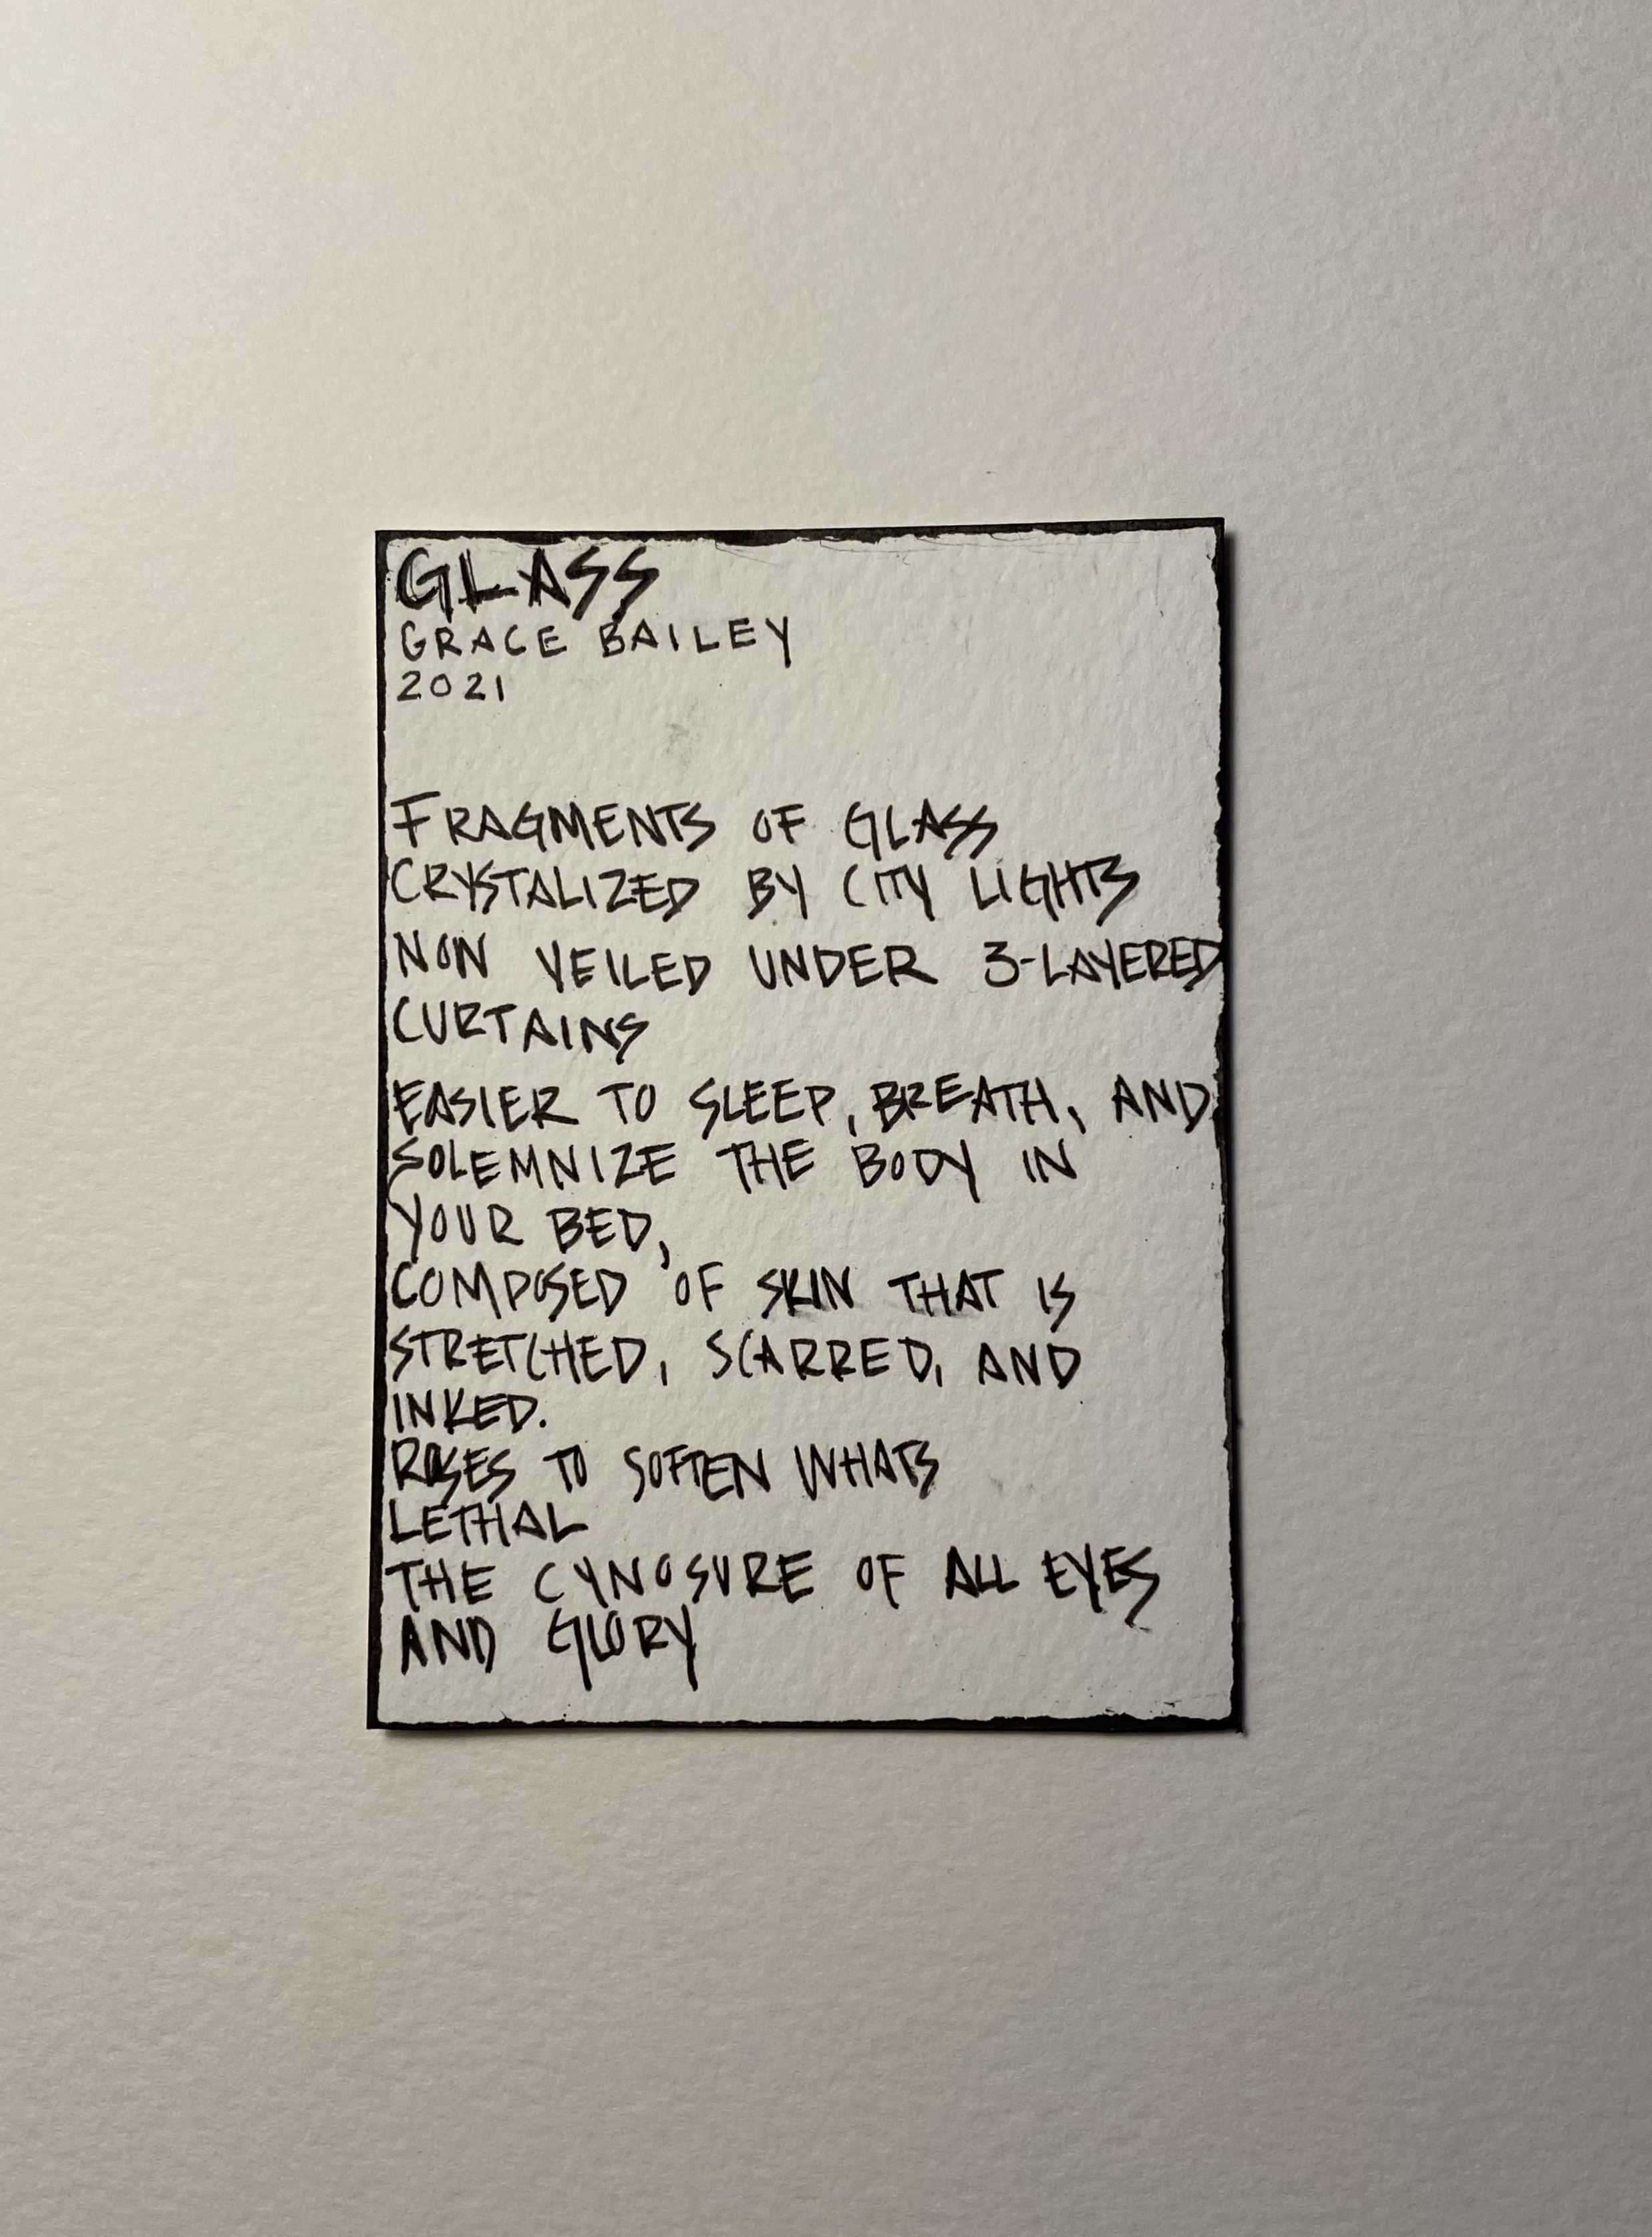 GLASS
GRACE BAILEY
2021
FRAGMENTS OF GLASS
CRYSTALIZED BY CITY LIGHTS
NOW VEILED UNDER 3-LAYERED
CURTAINS
EASIER TO SLEEP, BREATH, AND
SOLEMNIZE THE BODY IN
YOUR BED,
COMPOSED OF SKIN THAT IS
STRETCHED, SCARRED, AND
INKED.
ROSES TO SOFTEN WHATS
LETHAL
THE CYNOSURE OF ALL EYES
AND GLORY